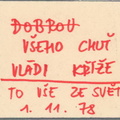 DOBROU
VŠEHO CHUŤ
VLÁDI KŘÍŽE
TO VŠE ZE SVĚT
1. 11. 78